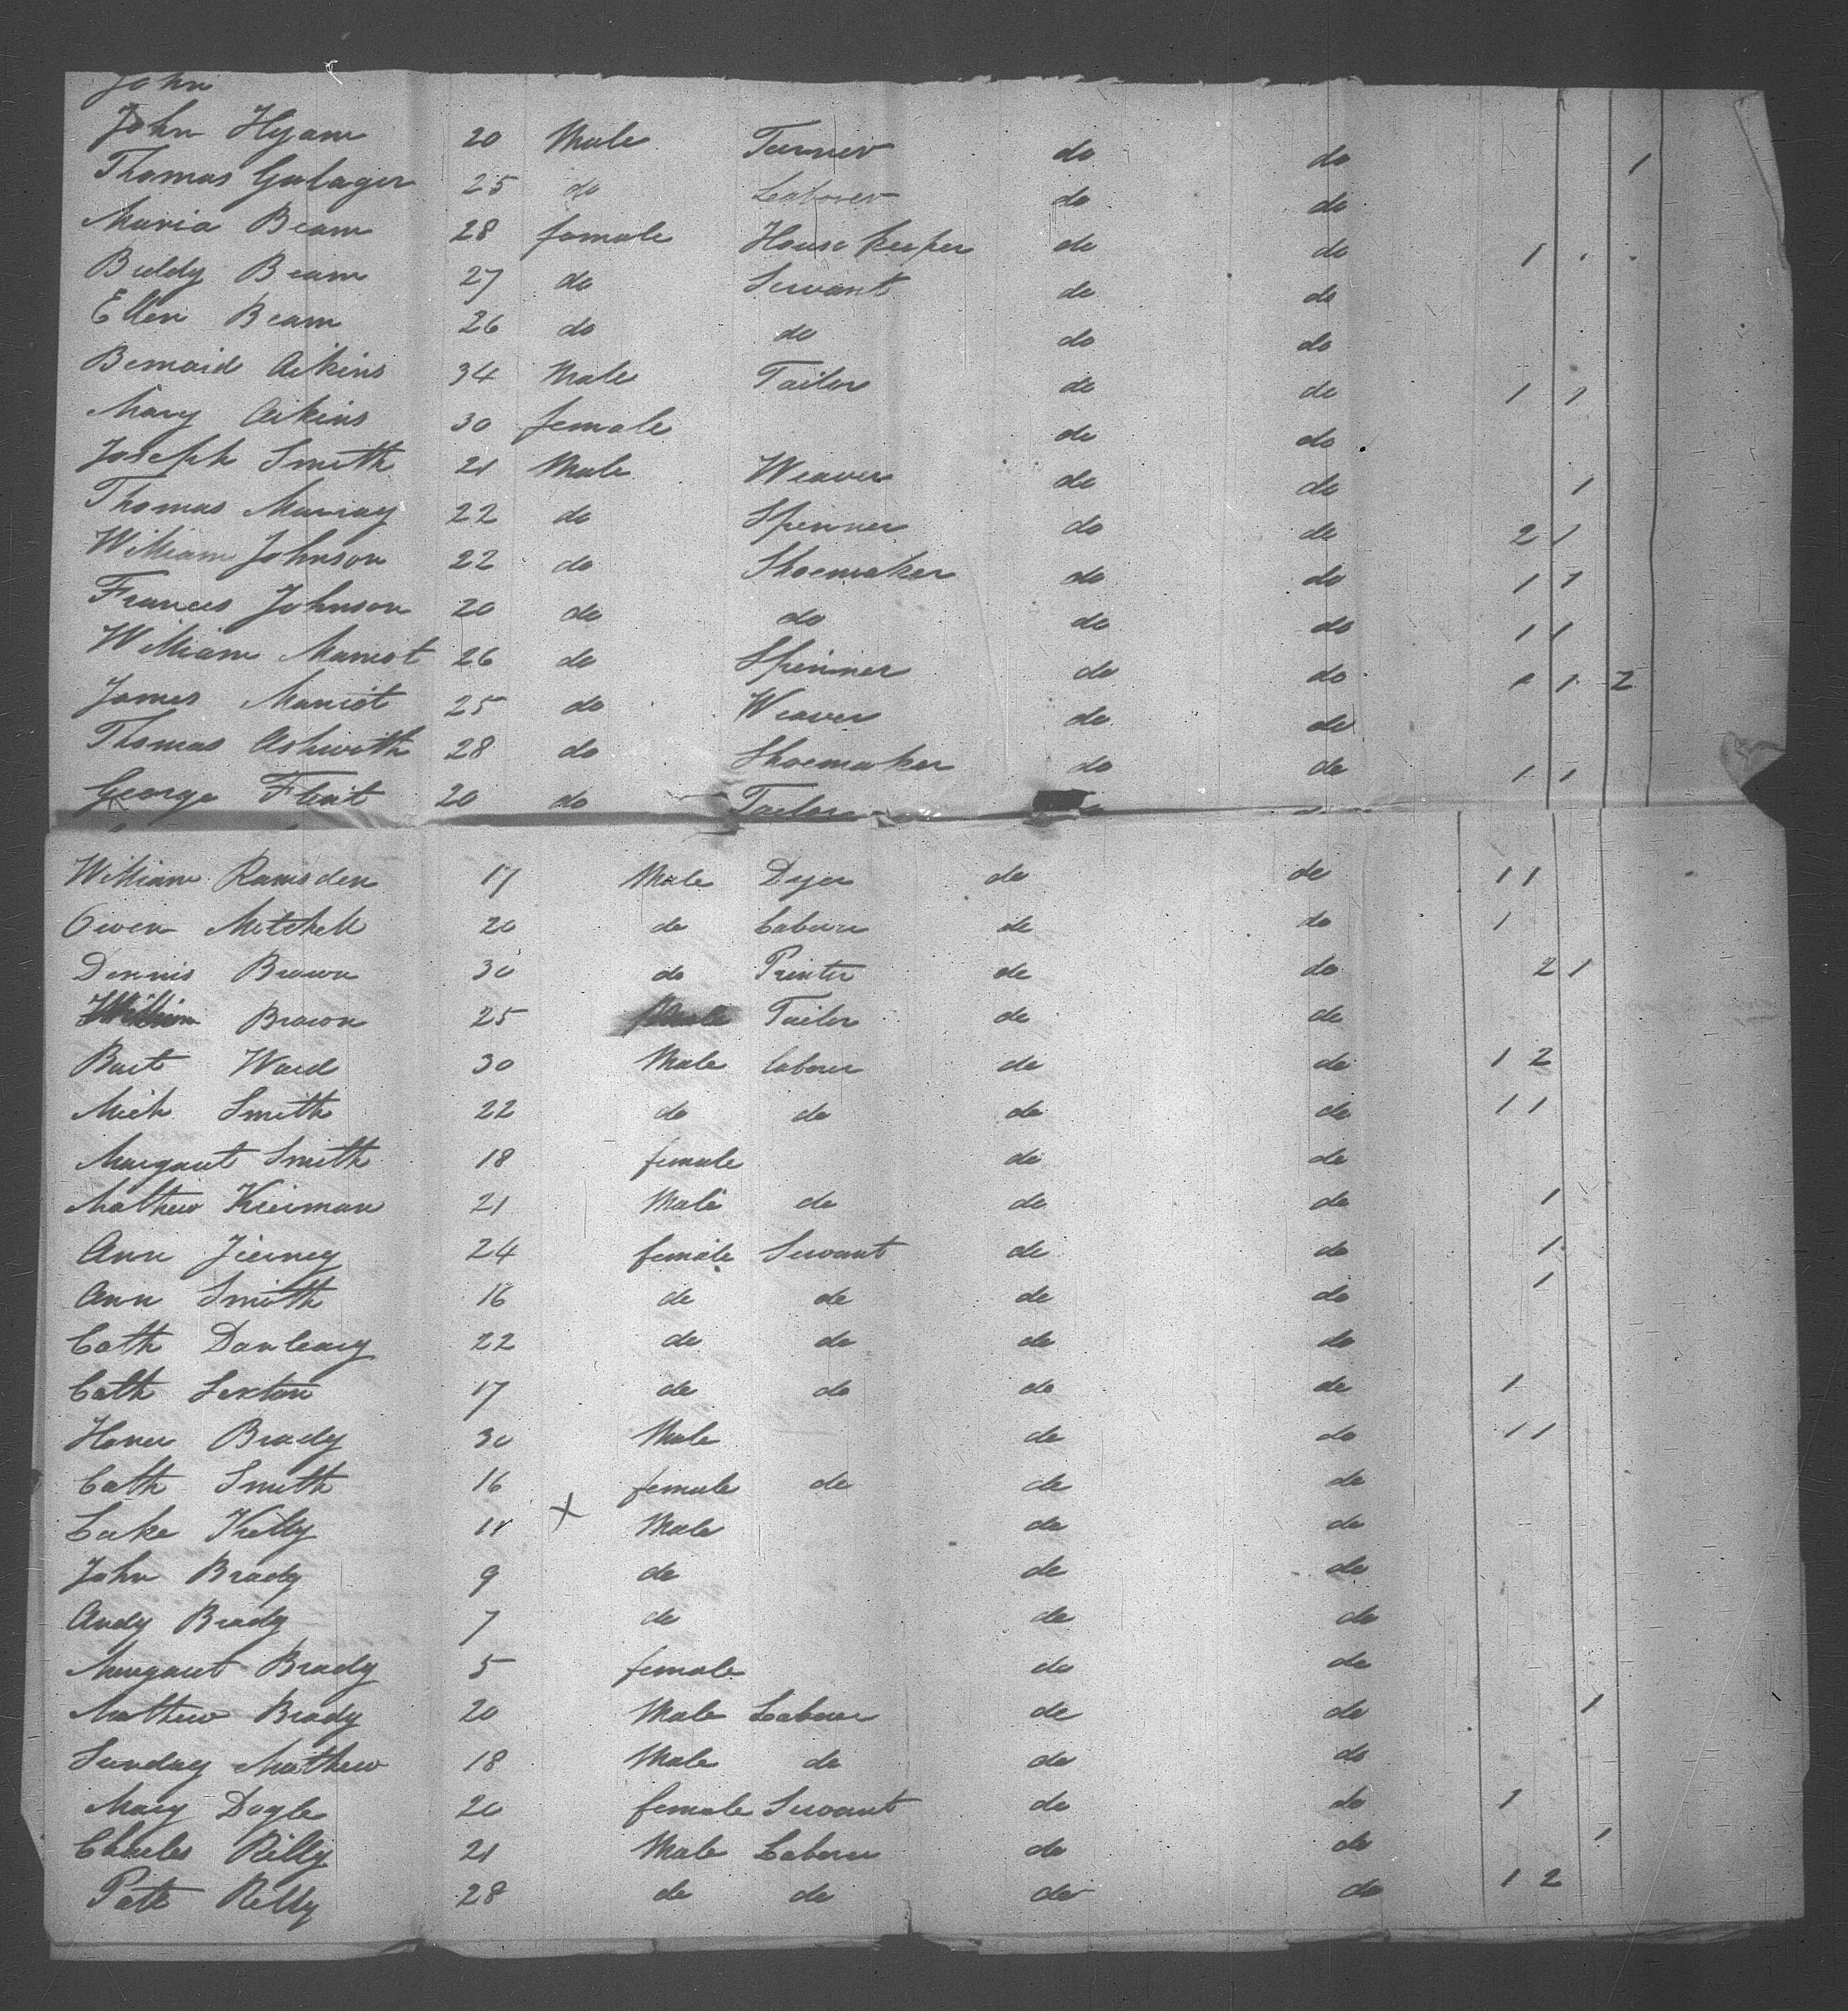 John
John Hyam 20 Male Turner do do 1
Thomas Galager 25 do Laborer do do
Maria Beam 28 female House keeper do do 1
Biddy Beam 27 do Servant do do
Ellen Beam 26 do do do do
Bernard Aikins 34 Male Tailor do do 1 1
Mary Aikins 30 female do do
Joseph Smith 21 Male Weaver do do 1
Thomas Murray 22 do Spinner do do 2 1
William Johnson 22 do Shoemaker do do 1 1
Frances Johnson 20 do do do do 1 1
William Marriot 26 do Spinner do do 1 1 2
James Marriot 25 do Weaver do do
Thomas Ashworth 28 do Shoemaker do do 1 1
George Flint 20 do Tailor
William Ramsden 17 Male Dyer do do 1 1
Owen Mitchell 20 do Laborer do do 1
Dennis Brown 30 do Printer do do 2 1
William Brown 25 Male Tailor do do
Bart Ward 30 Male laborer do do 1 2
Mich Smith 22 do do do do 1 1
Margaret Smith 18 female do do
Mathew Kieirnan 21 Male do do do 1
Ann Tierney 24 female Servant do do 1
Ann Smith 16 do do do do 1
Cath Dunleavy 22 do do do do
Cath Sexton 17 do do do do 1
Honer Brady 30 Male do do 1 1
Cath Smith 16 female do do do
Luke Kelly 11 X Male do do
John Brady 9 do do do
Andy Brady 7 do do do
Margaret Brady 5 female do do
Mathew Brady 20 Male Laborer do do 1
Sunday Mathew 18 Male do do do
Mary Doyle 20 female Servant do do 1
Charles Rilly 21 Male Laborer do do 1
Patk Rilly 28 do do do do 1 2